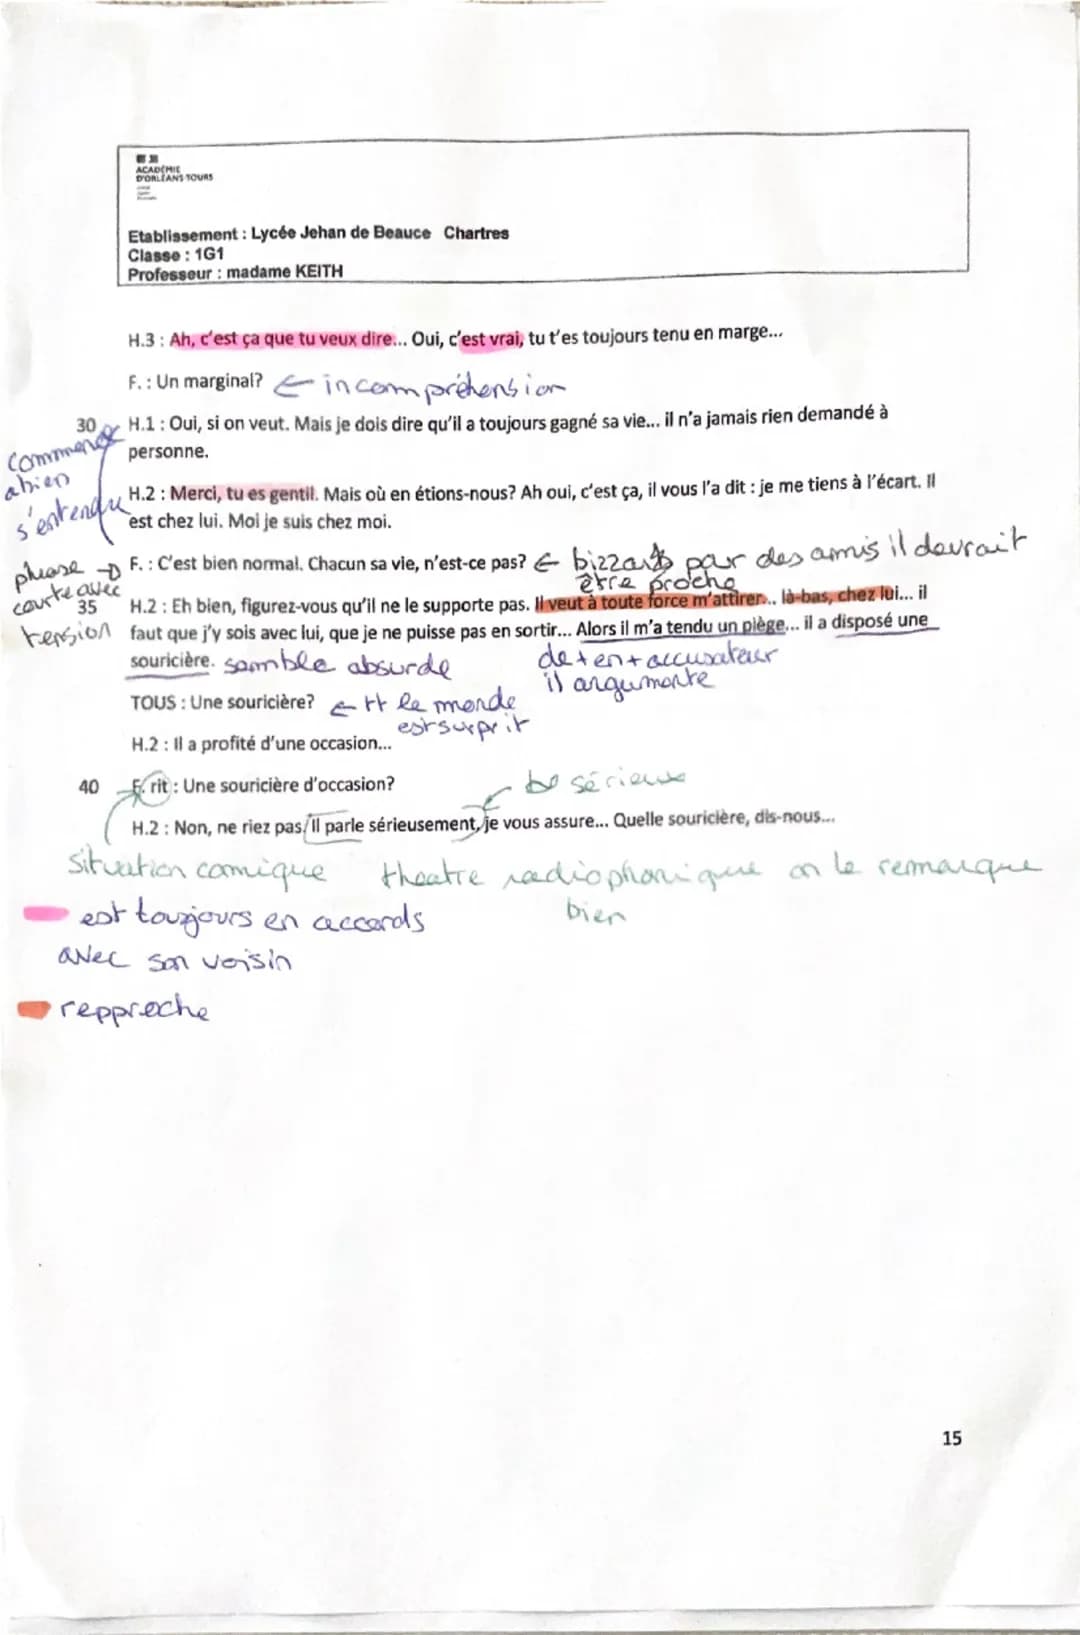 ACADÉMIE
D'ORLÉANS-TOURS
Etablissement : Lycée Jehan de Beauce Chartres
Classe : 1G1
Professeur : madame KEITH
H.3 : Ah, c'est ça que tu veux dire... Oui, c'est vrai, tu t'es toujours tenu en marge...
F. : Un marginal? ← incompréhension
30 H.1 : Oui, si on veut. Mais je dois dire qu'il a toujours gagné sa vie... il n'a jamais rien demandé à
personne.
commence
a bien
s'entendre
H.2 : Merci, tu es gentil. Mais où en étions-nous? Ah oui, c'est ça, il vous l'a dit : je me tiens à l'écart. Il
est chez lui. Moi je suis chez moi.
phrase
courte avec
tension
F. : C'est bien normal. Chacun sa vie, n'est-ce pas? ← bizzard par des amis il devrait
être proche
35 H.2 : Eh bien, figurez-vous qu'il ne le supporte pas. Il veut à toute force m'attirer... là-bas, chez lui... il
faut que j'y sois avec lui, que je ne puisse pas en sortir... Alors il m'a tendu un piège... il a disposé une
souricière. samble absurde
de + en + accusateur
il argumente
TOUS : Une souricière? ← tt le monde
est surprit
H.2 : Il a profité d'une occasion...
40 F. rit : Une souricière d'occasion?
sérieux
H.2 : Non, ne riez pas. Il parle sérieusement, je vous assure... Quelle souricière, dis-nous...
situation comique theatre radiophonique on le remarque
bien
est toujours en accords
avec son voisin
repproche
15